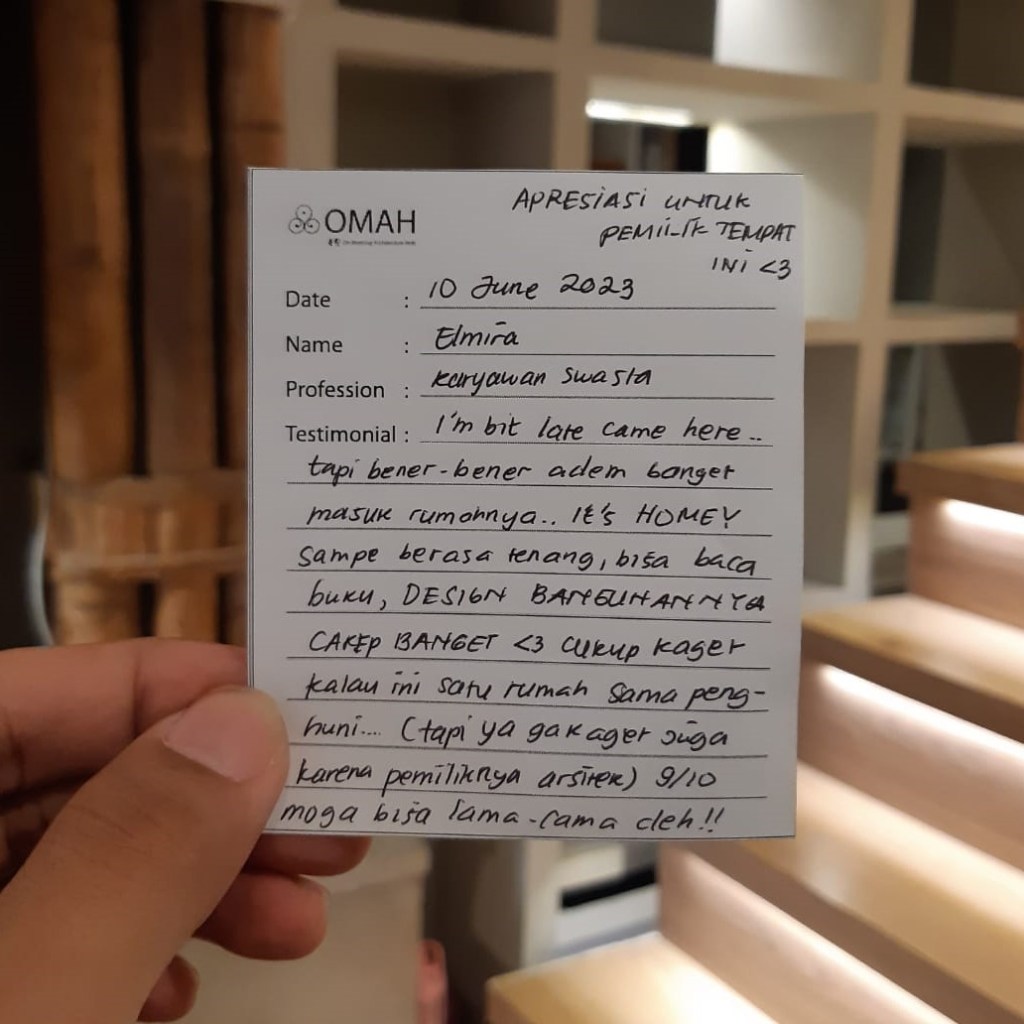 OMAH
APRESIASI UNTUK
PEMILIK TEMPAT
INI <3
Date : 10 June 2023
Name : Elmira
Profession : Karyawan Swasta
Testimonial : I'm bit late came here..
tapi bener-bener adem banget
masuk rumahnya.. It's HOMEY
sampe berasa tenang, bisa baca
buku, DESIGN BANGUNANNYA
CAKEP BANGET <3 cukup kaget
kalau ini satu rumah sama peng-
huni.... (tapi ya ga kaget juga
karena pemiliknya arsitek) 9/10
moga bisa lama-lama deh!!